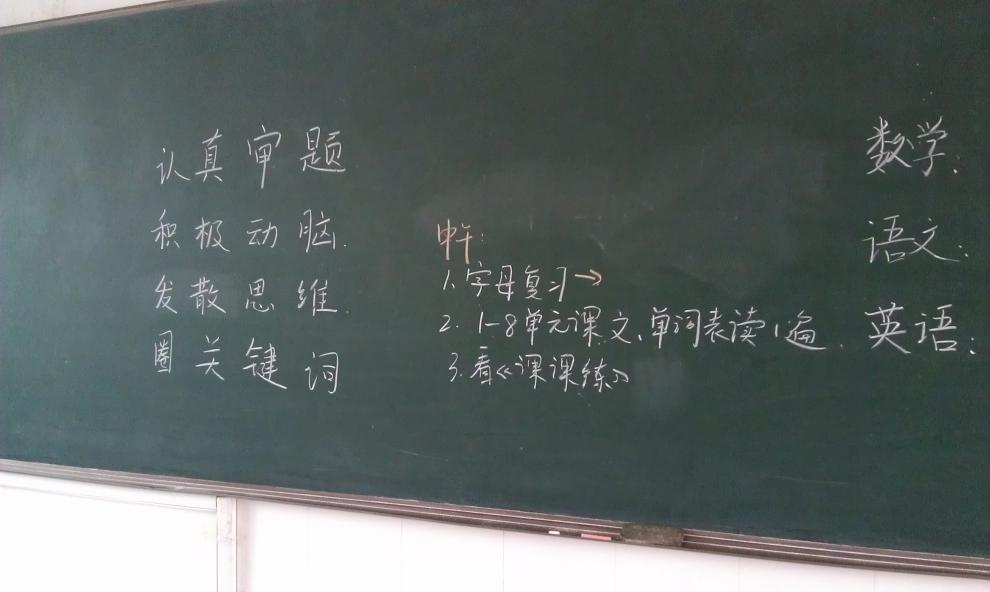 认真审题
积极动脑.
发散思维.
圈关键词
中午:
1.字母复习→
2. 1-8单元课文、单词表读1遍.
3.看《课课练》
数学:
语文:
英语: